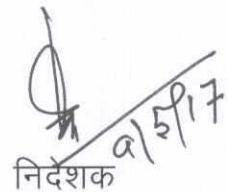 9/5/17
निदेशक